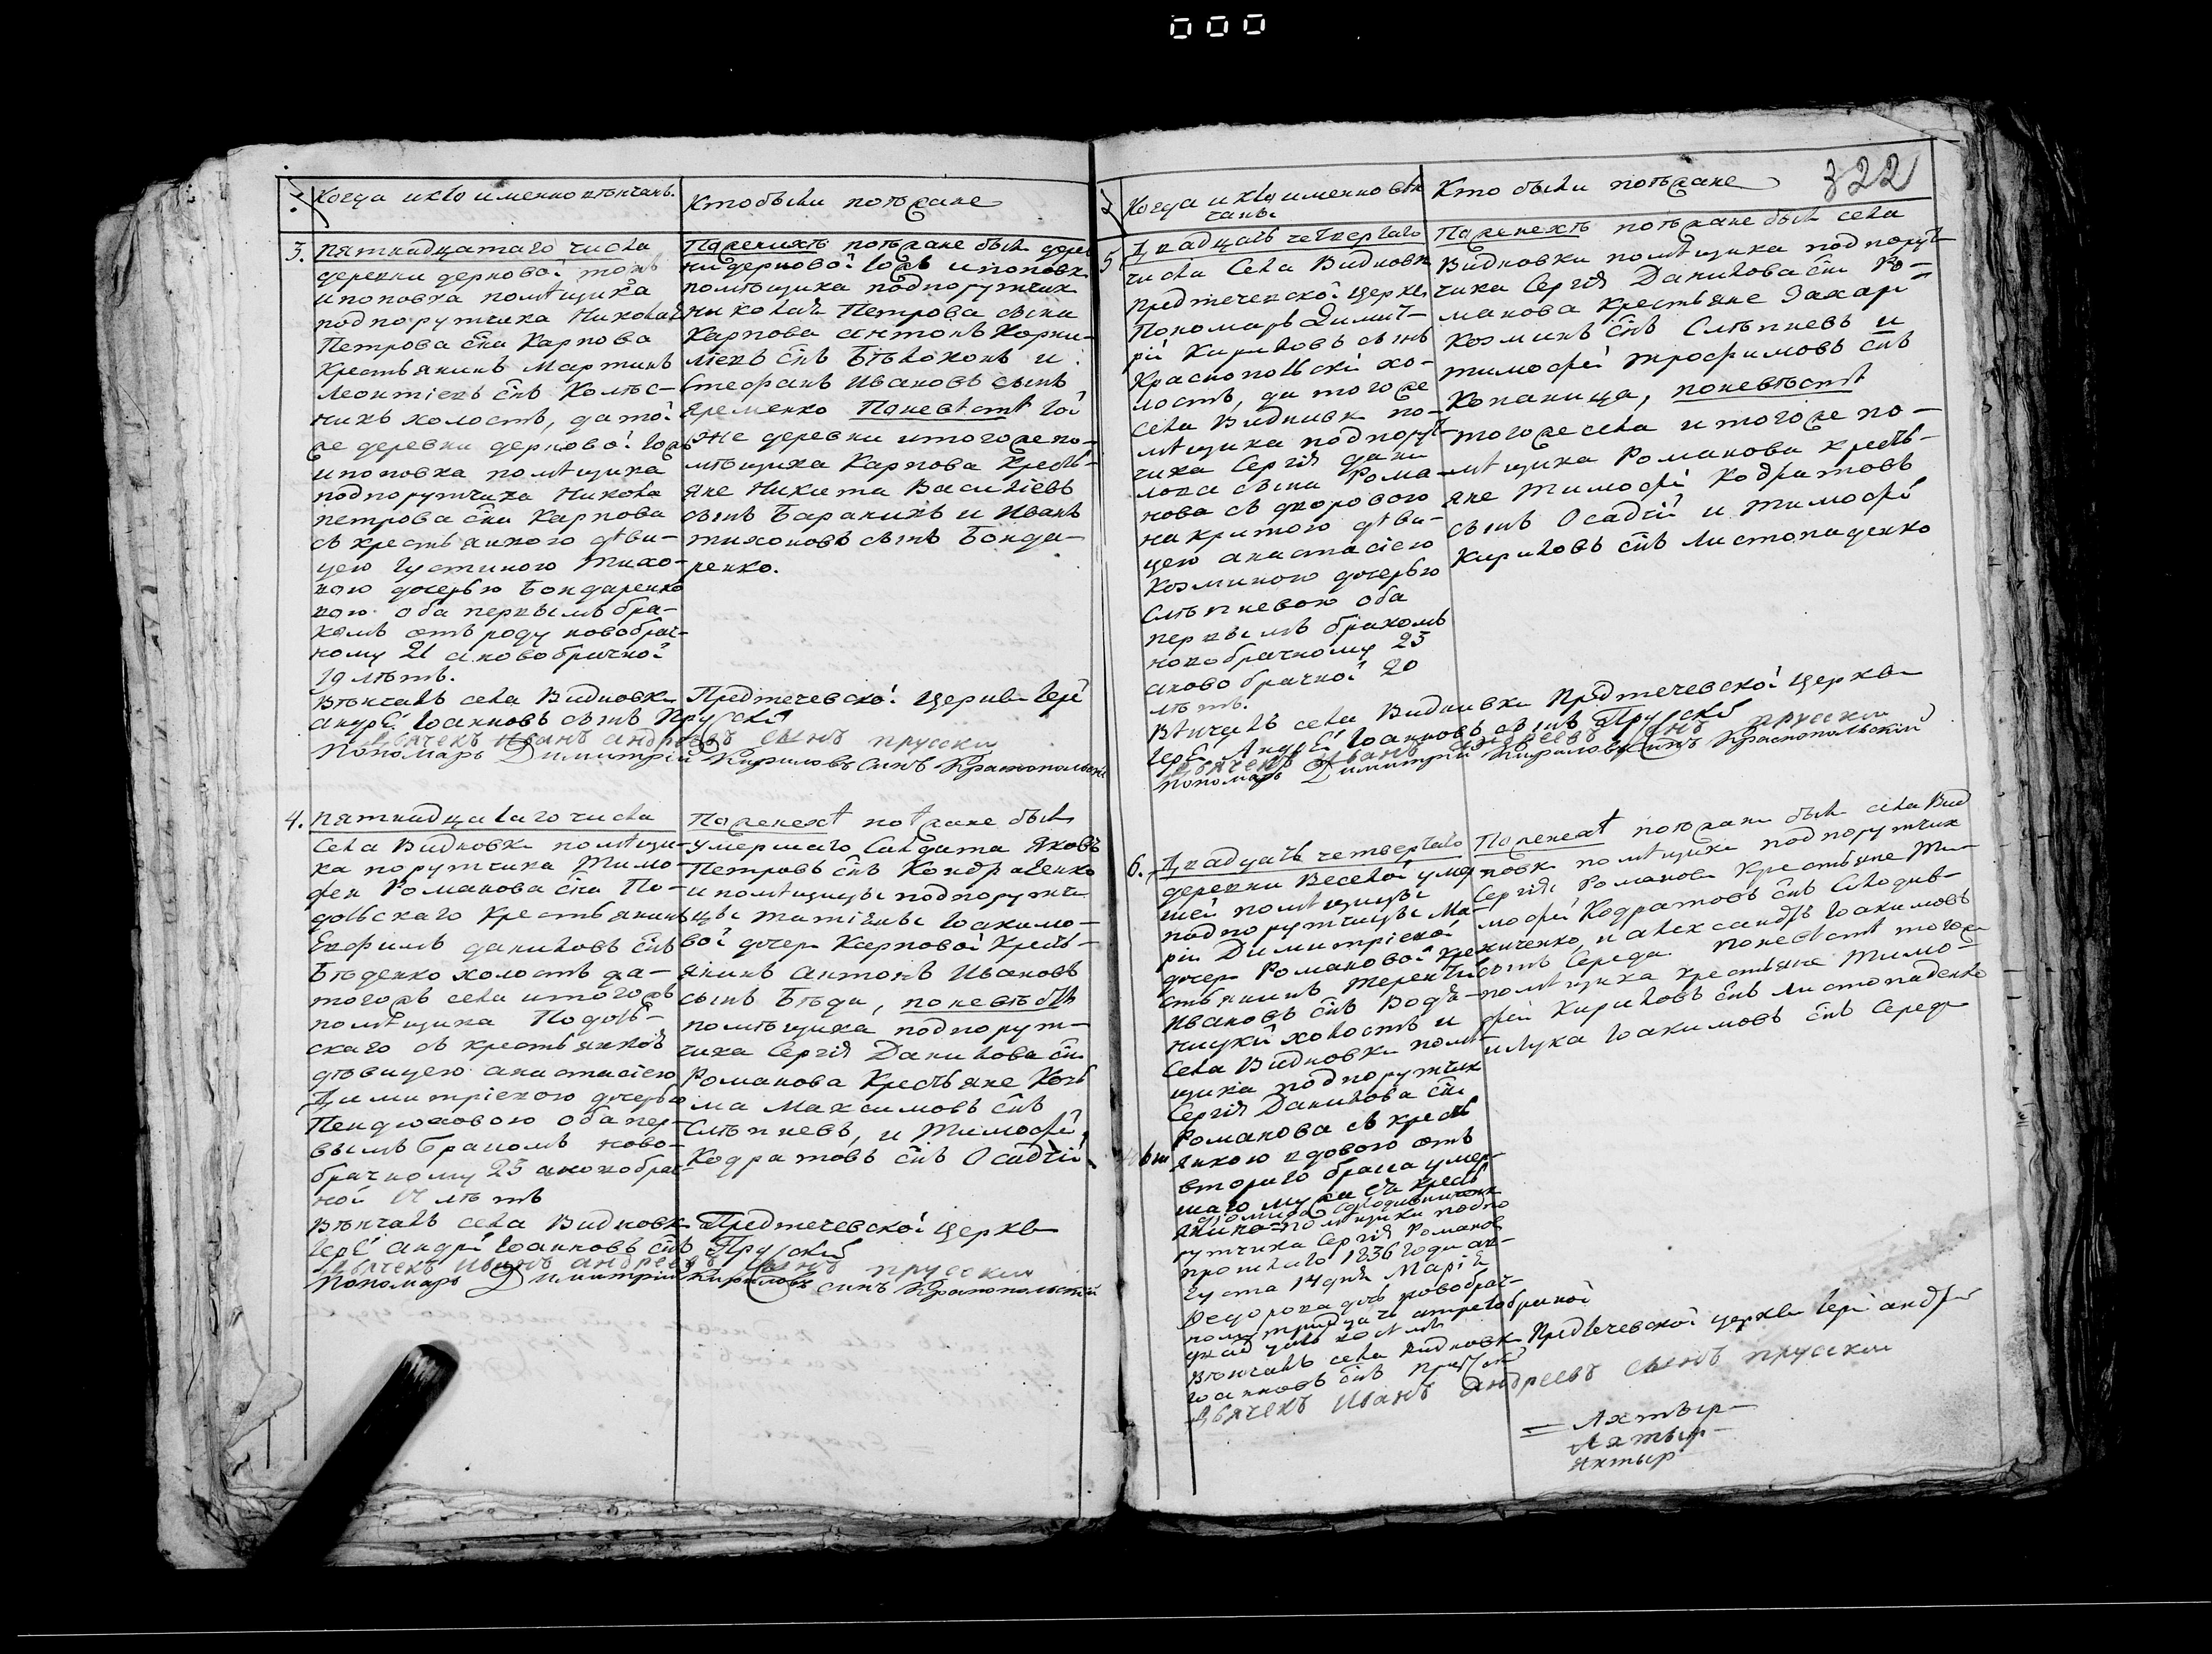 000
Когда и кто именно вѣнчанъ.
Кто были поѣзжане
3. Пятнадцатаго числа
деревни дерновой тожъ
и поповка помѣщика
подпорутчика Николая
Петрова сна Карпова
крестьянинъ Мартинъ
Леонтіевъ снъ Колѣс-
никъ холостъ, да той
же деревни дерновой тожъ
и поповка помѣщика
подпорутчика Никола
петрова сна Карпова
съ крестьянкою дѣви-
цею Густиною Тихо-
ною дочерью Бондаренко
вою оба первымъ бра-
комъ отъ роду новобрач-
ному 21 а новобрачной
19 лѣтъ.
Пожених поѣзжане был дерев
ни дерновой тожъ и поповк
помѣщика подпорутчик
Николая Петрова сына
Карпова Антонъ Корни-
ліевъ снъ Бѣлоконь и
Стефанъ Ивановъ сынъ
Яременко Поневѣстѣ той
же деревни и того же по-
мѣщика Карпова кресть-
яне Никита Василіевъ
сынъ Бараникъ и Иванъ
тихоновъ сынъ Бонда-
ренко.
Вѣнчалъ села Видновки Предтечевской церкви Іерей
андрей Іоанновъ сынъ Прускій
Дьячекъ Иванъ андреевъ сынъ прускии
Пономарь Димитрій Кириловъ синъ Краснопольскій
4. Пятнадцатаго числа
Села Видновки помѣщи-
ка порутчика Тимо-
фея Романова сна По-
дольскаго крестьянинъ
Евфимъ даниловъ снъ
Бѣденко холостъ да
тогожъ села и тогожъ
помѣщика Подоль-
скаго съ крестьянкой
дѣвицею анастасіею
Димитріевою дочерью
Пендюховою оба пер-
вымъ бракомъ ново-
брачному 23 а новобрач-
ной 17 лѣтъ
Поженехѣ поѣзжане был
умершаго Салдата Яковъ
Петровъ снъ Кондратенко
и помѣщицы подпорутчи
цы татіяны Іоакимо-
вой дочери Карповой кресть-
янинъ антонъ Ивановъ
сынъ Бѣда, поневѣстѣ
помѣщика подпорут-
чика Сергія Данилова сна
Романова крестьяне Козь
ма Максимовъ снъ
Слѣпневъ, и Тимофей
Кодратовъ снъ Осадчій
Вѣнчалъ села Видновки Предтечевской церкви
Іерей андрей Іоанновъ снъ Прускій
Дьячекъ Иванъ андреевъ сынъ прускии
Пономарь Димитрій Кириловъ синъ Краснопольскій
322
Когда и кто именно вѣн
чаны
Кто были поѣзжане
5 Двадцать четвертаго
числа Села Видновки
Предтеченской церкви
Пономарь Димит-
рій Кириловъ сынъ
Краснопольскій хо-
лостъ, да того же
села Видновки по-
мѣщика подпорут-
чика Сергія дани
лова сына Рома-
нова съ дворового
накритого дѣви-
цею анастасіею
Козминою дочерью
Слѣпневою оба
первымъ бракомъ
новобрачному 23
а новобрачной 20
лѣтъ.
Поженехъ поѣзжане был села
Видновки помѣщика подпорут
чика Сергія Данилова сна Ро-
манова крестьяне Захарі
Козминъ снъ Слѣпневъ и
тимофей трофимовъ снъ
Копаница, поневѣстѣ
того же села и того же по-
мѣщика Романова кресть-
яне Тимофей Кодратовъ
сынъ Осадчій и тимофей
Кириловъ снъ Листопаденко
Вѣнчалъ села Видновки Предтечевской церкви
Іерей Андрей Іоанновъ сынъ Прускій
Дьячекъ Иванъ андреевъ сынъ прускии
пономарь Димитрій Кириловъ синъ Краснопольскій
6. Двадцать четвертаго
деревни Веселой умер
шей помѣщицы
подпорутчицы Ма-
ріи Димитріевой
дочери Романовой кре
стьянинъ терентій
Ивановъ снъ Водя-
ницкій холостъ и
Села Видновки помѣ
щика подпорутчик
Сергія Данилова сна
Романова съ кресть
янкою вдовою отъ
втораго брака умер-
шаго мужа ея кресть
янина помѣщика подпо
рутчика Сергія Романов
прошлаго 1836 года ав-
густа 14 дня Марія
Федорова дочь новобрач-
ному тридцать а новобрачной
двадцать лѣтъ
Поженехѣ поѣзжани был села Вид
новк помѣщика подпорутчик
Сергія Романова крестьяне Ти-
мофей Кодратовъ снъ Сиводив-
ниченко, и александръ Іоакимовъ
сынъ Середа поневѣстѣ тогоже
помѣщика крестьяне Тимо-
фей Кириловъ снъ Листопаденко
и Лука Іоакимовъ снъ Середа
Вѣнчалъ села Видновки Предтечевской церкви Іерей андрей
Іоанновъ снъ Прускій
Дьячекъ Иванъ андреевъ сынъ прускии
= Ахтыр-
Ахтыр-
Ахтыр